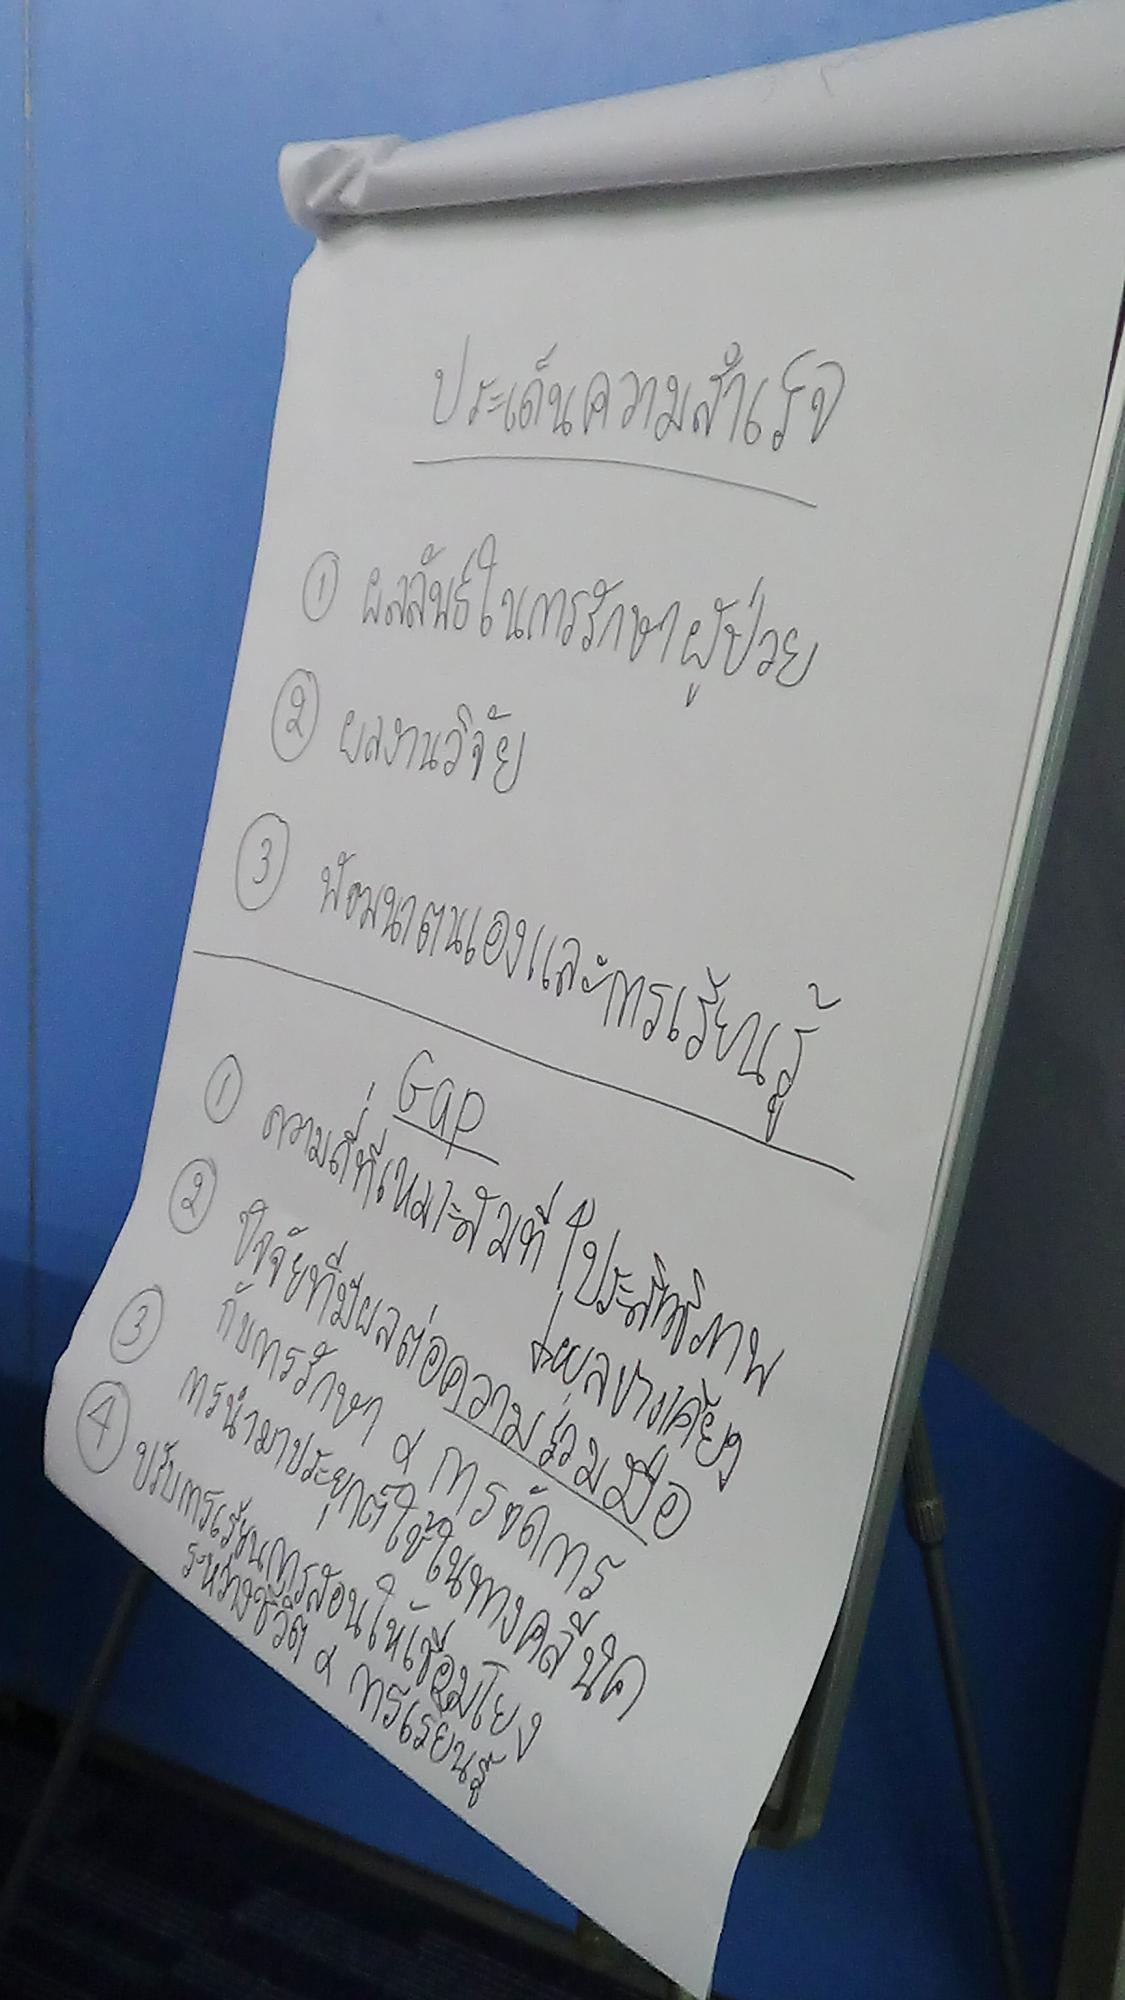 ประเด็นความสำเร็จ
① ผลลัพธ์ในการรักษาผู้ป่วย
② ผลงานวิจัย
③ พัฒนาตนเองและการเรียนรู้
Gap
① ความถี่ที่เหมาะสมที่ ↑ประสิทธิภาพ
↓ผลข้างเคียง
② ปัจจัยที่มีผลต่อความร่วมมือ
กับการรักษา & การจัดการ
③ การนำมาประยุกต์ใช้ในทางคลีนิค
④ ปรับการเรียนการสอนให้เชื่อมโยง
ระหว่างชีวิต & การเรียนรู้